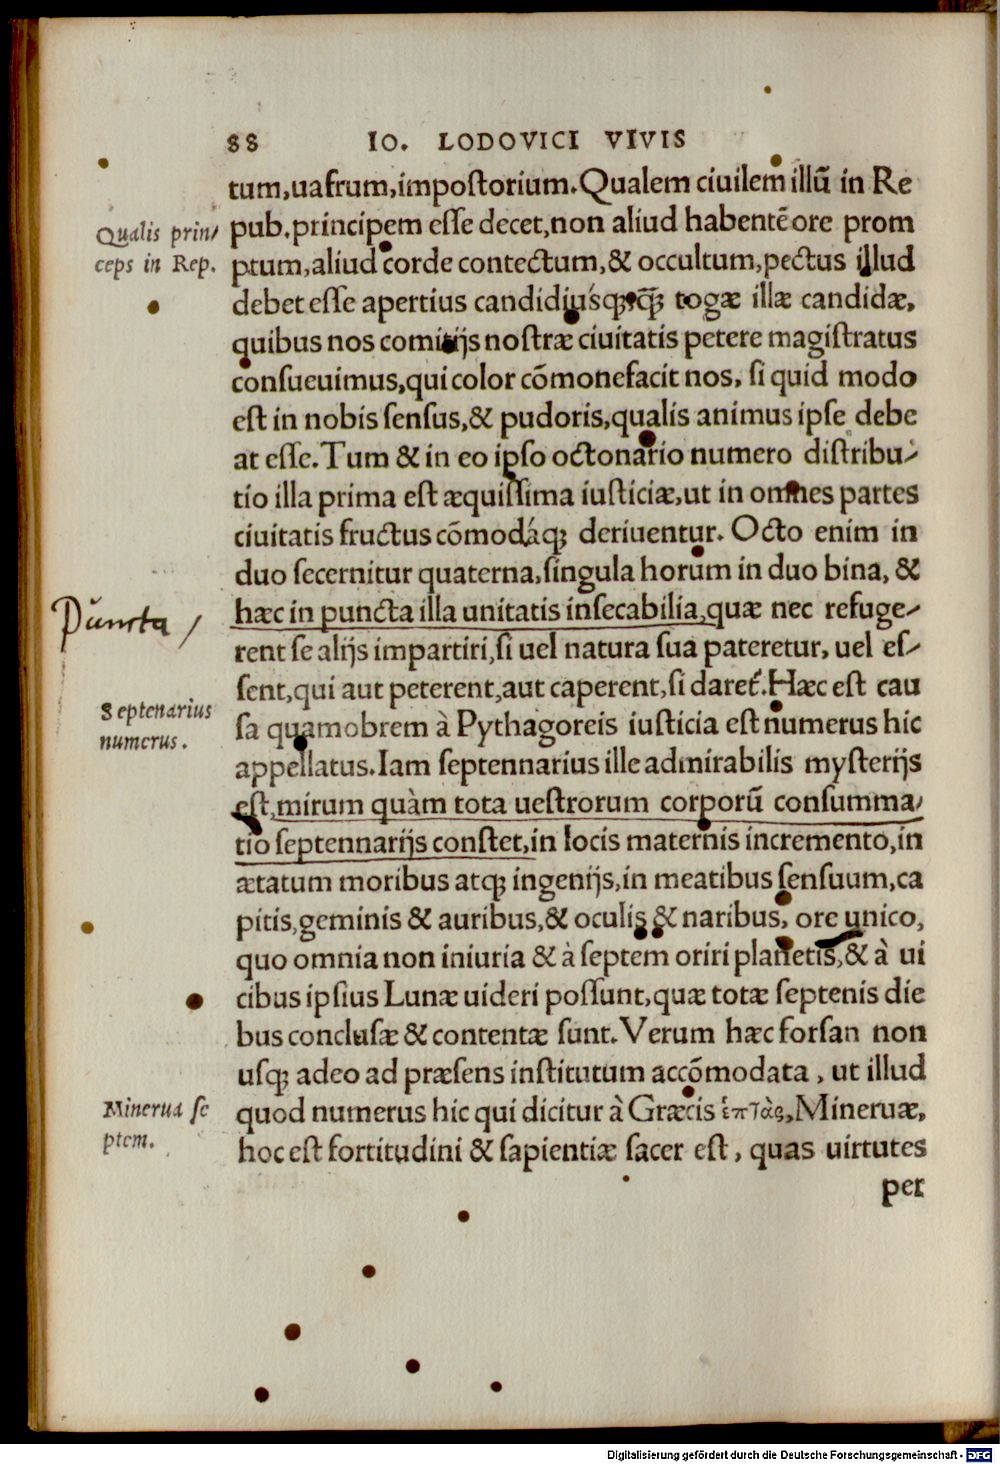 88 IO. LODOVICI VIVIS
tum,uafrum,impostorium.Qualem ciuilem illũ in Re
Qualis prin/
ceps in Rep.
pub.principem esse decet,non aliud habentẽ ore prom
ptum,aliud corde contectum,& occultum,pectus illud
debet esse apertius candidiusq́; q̃; togæ illæ candidæ,
quibus nos comitijs nostræ ciuitatis petere magistratus
consueuimus,qui color cõmonefacit nos, si quid modo
est in nobis sensus,& pudoris,qualis animus ipse debe
at esse.Tum & in eo ipso octonario numero distribu/
tio illa prima est æquissima iusticiæ,ut in omnes partes
ciuitatis fructus cõmodáq; deriuentur. Octo enim in
duo secernitur quaterna,singula horum in duo bina, &
Puncta /
hæc in puncta illa unitatis insecabilia,quæ nec refuge/
rent se alijs impartiri,si uel natura sua pateretur, uel es/
sent,qui aut peterent,aut caperent,si daret᷑.Hæc est cau
Septenarius
numerus.
sa quamobrem à Pythagoreis iusticia est numerus hic
appellatus.Iam septennarius ille admirabilis mysterijs
est,mirum quàm tota uestrorum corporũ consumma/
tio septennarijs constet,in locis maternis incremento,in
ætatum moribus atq; ingenijs,in meatibus sensuum,ca
pitis,geminis & auribus,& oculis & naribus, ore unico,
quo omnia non iniuria & à septem oriri planetis,& à ui
cibus ipsius Lunæ uideri possunt,quæ totæ septenis die
bus conclusæ & contentæ sunt.Verum hæc forsan non
usq; adeo ad præsens institutum accõmodata , ut illud
Minerua se
ptem.
quod numerus hic qui dicitur à Græcis ἑπτὰς,Mineruæ,
hoc est fortitudini & sapientiæ sacer est, quas uirtutes
per
Digitalisierung gefördert durch die Deutsche Forschungsgemeinschaft - DFG